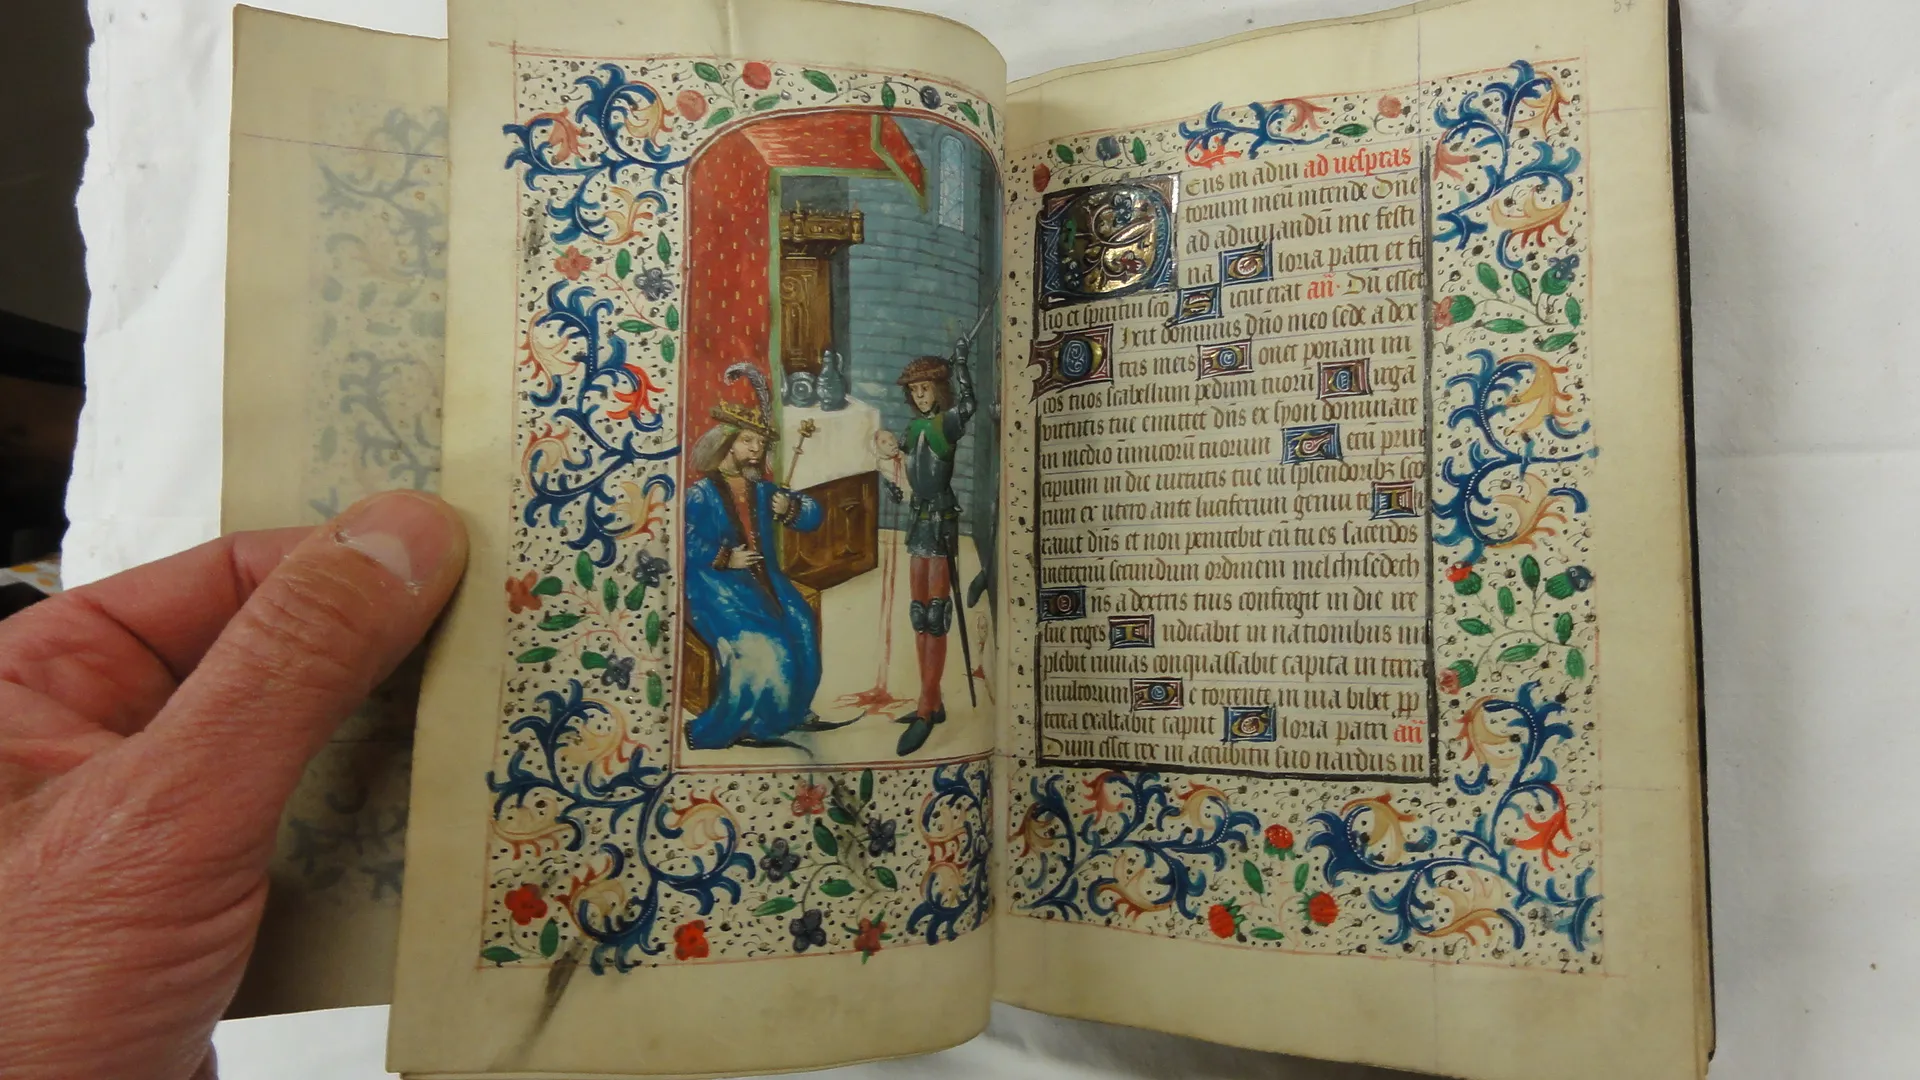 57
Eus in adiu ad uesp̄ras
torium meū intende Dn̄e
ad adiuuandū me festi
na Gloria patri et fi
lio et spiritui sco Sicut erat an̄. Dū esset
Dixit dominus dn̄o meo sede a dex
tris meis Donec ponam ini
cos tuos scabellum pedum tuorū Uirgā
uirtutis tue emittet dn̄s ex syon dominare
in medio inimicorū tuorum Tecū prin
cipium in die uirtutis tue in splendoribꝫ sco
rum ex utero ante luciferum genui te I
rauit dn̄s et non penitebit eū tu es sacerdos
ineternū secundum ordinem melchisedech
Dn̄s a dextris tuis confregit in die ire
sue reges Iudicabit in nationibus im
plebit ruinas conquassabit capita in terra
multorum De torrente in uia bibet pp
terea exaltabit caput Gloria patri an̄
Dum esset rex in accubitu suo nardus in